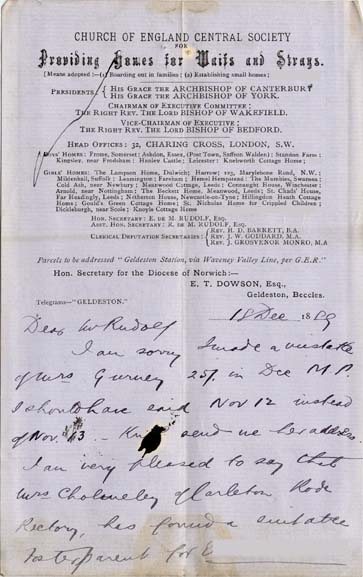 CHURCH OF ENGLAND CENTRAL SOCIETY
FOR
Providing Homes for Waifs and Strays.
[Means adopted:—(1) Boarding out in families; (2) Establishing small homes;
PRESIDENTS { HIS GRACE THE ARCHBISHOP OF CANTERBURY
HIS GRACE THE ARCHBISHOP OF YORK.
CHAIRMAN OF EXECUTIVE COMMITTEE:
THE RIGHT REV. THE LORD BISHOP OF WAKEFIELD.
VICE-CHAIRMAN OF EXECUTIVE:
THE RIGHT REV. THE LORD BISHOP OF BEDFORD.
HEAD OFFICES: 32, CHARING CROSS, LONDON, S.W.
BOYS' HOMES: Frome, Somerset; Ashdon, Essex, (Post Town, Saffron Walden); Standon Farm;
Kingsley, near Frodsham; Hexley Castle; Leicester; Knebworth Cottage Home;
GIRLS' HOMES: The Lampson Home, Dulwich; Harrow; 125, Marylebone Road, N.W.;
Mildenhall, Suffolk; Leamington; Fareham; Hemel Hempstead; The Mumbles, Swansea;
Cold Ash, near Newbury; Meanwood Cottage, Leeds; Connaught House, Winchester;
Arnold, near Nottingham; The Beckett Home, Meanwood, Leeds; St. Chads' House,
Far Headingly, Leeds; Netherton House, Newcastle-on-Tyne; Hillingdon Heath Cottage
Home; Gould's Green Cottage Home; St. Nicholas Home for Crippled Children;
Dickleburgh, near Scole; Knoyle Cottage Home
HON. SECRETARY: E. DE M. RUDOLF, ESQ.
ASST. HON. SECRETARY: R. DE M. RUDOLF, ESQ.
CLERICAL DEPUTATION SECRETARIES: { REV. H. D. BARRETT, B.A.
REV. J. W. GODDARD, M.A.
REV. J. GROSVENOR MONRO, M.A
Parcels to be addressed "Geldeston Station, via Waveney Valley Line, per G.E.R"
Hon. Secretary for the Diocese of Norwich:—
E. T. DOWSON, ESQ.,
Geldeston, Beccles.
Telegrams—"GELDESTON." 18 Dec 1889
Dear Mr Rudolf
I am sorry I made a mistake
of Mrs Gurney 25/. in Dec M.P.
I should have said Nov 12 instead
of Nov. 13. — send me her address
I am very pleased to say that
Mrs Cholmeley of Carleton Rode
Rectory, has found a suitable
fosterparent for E